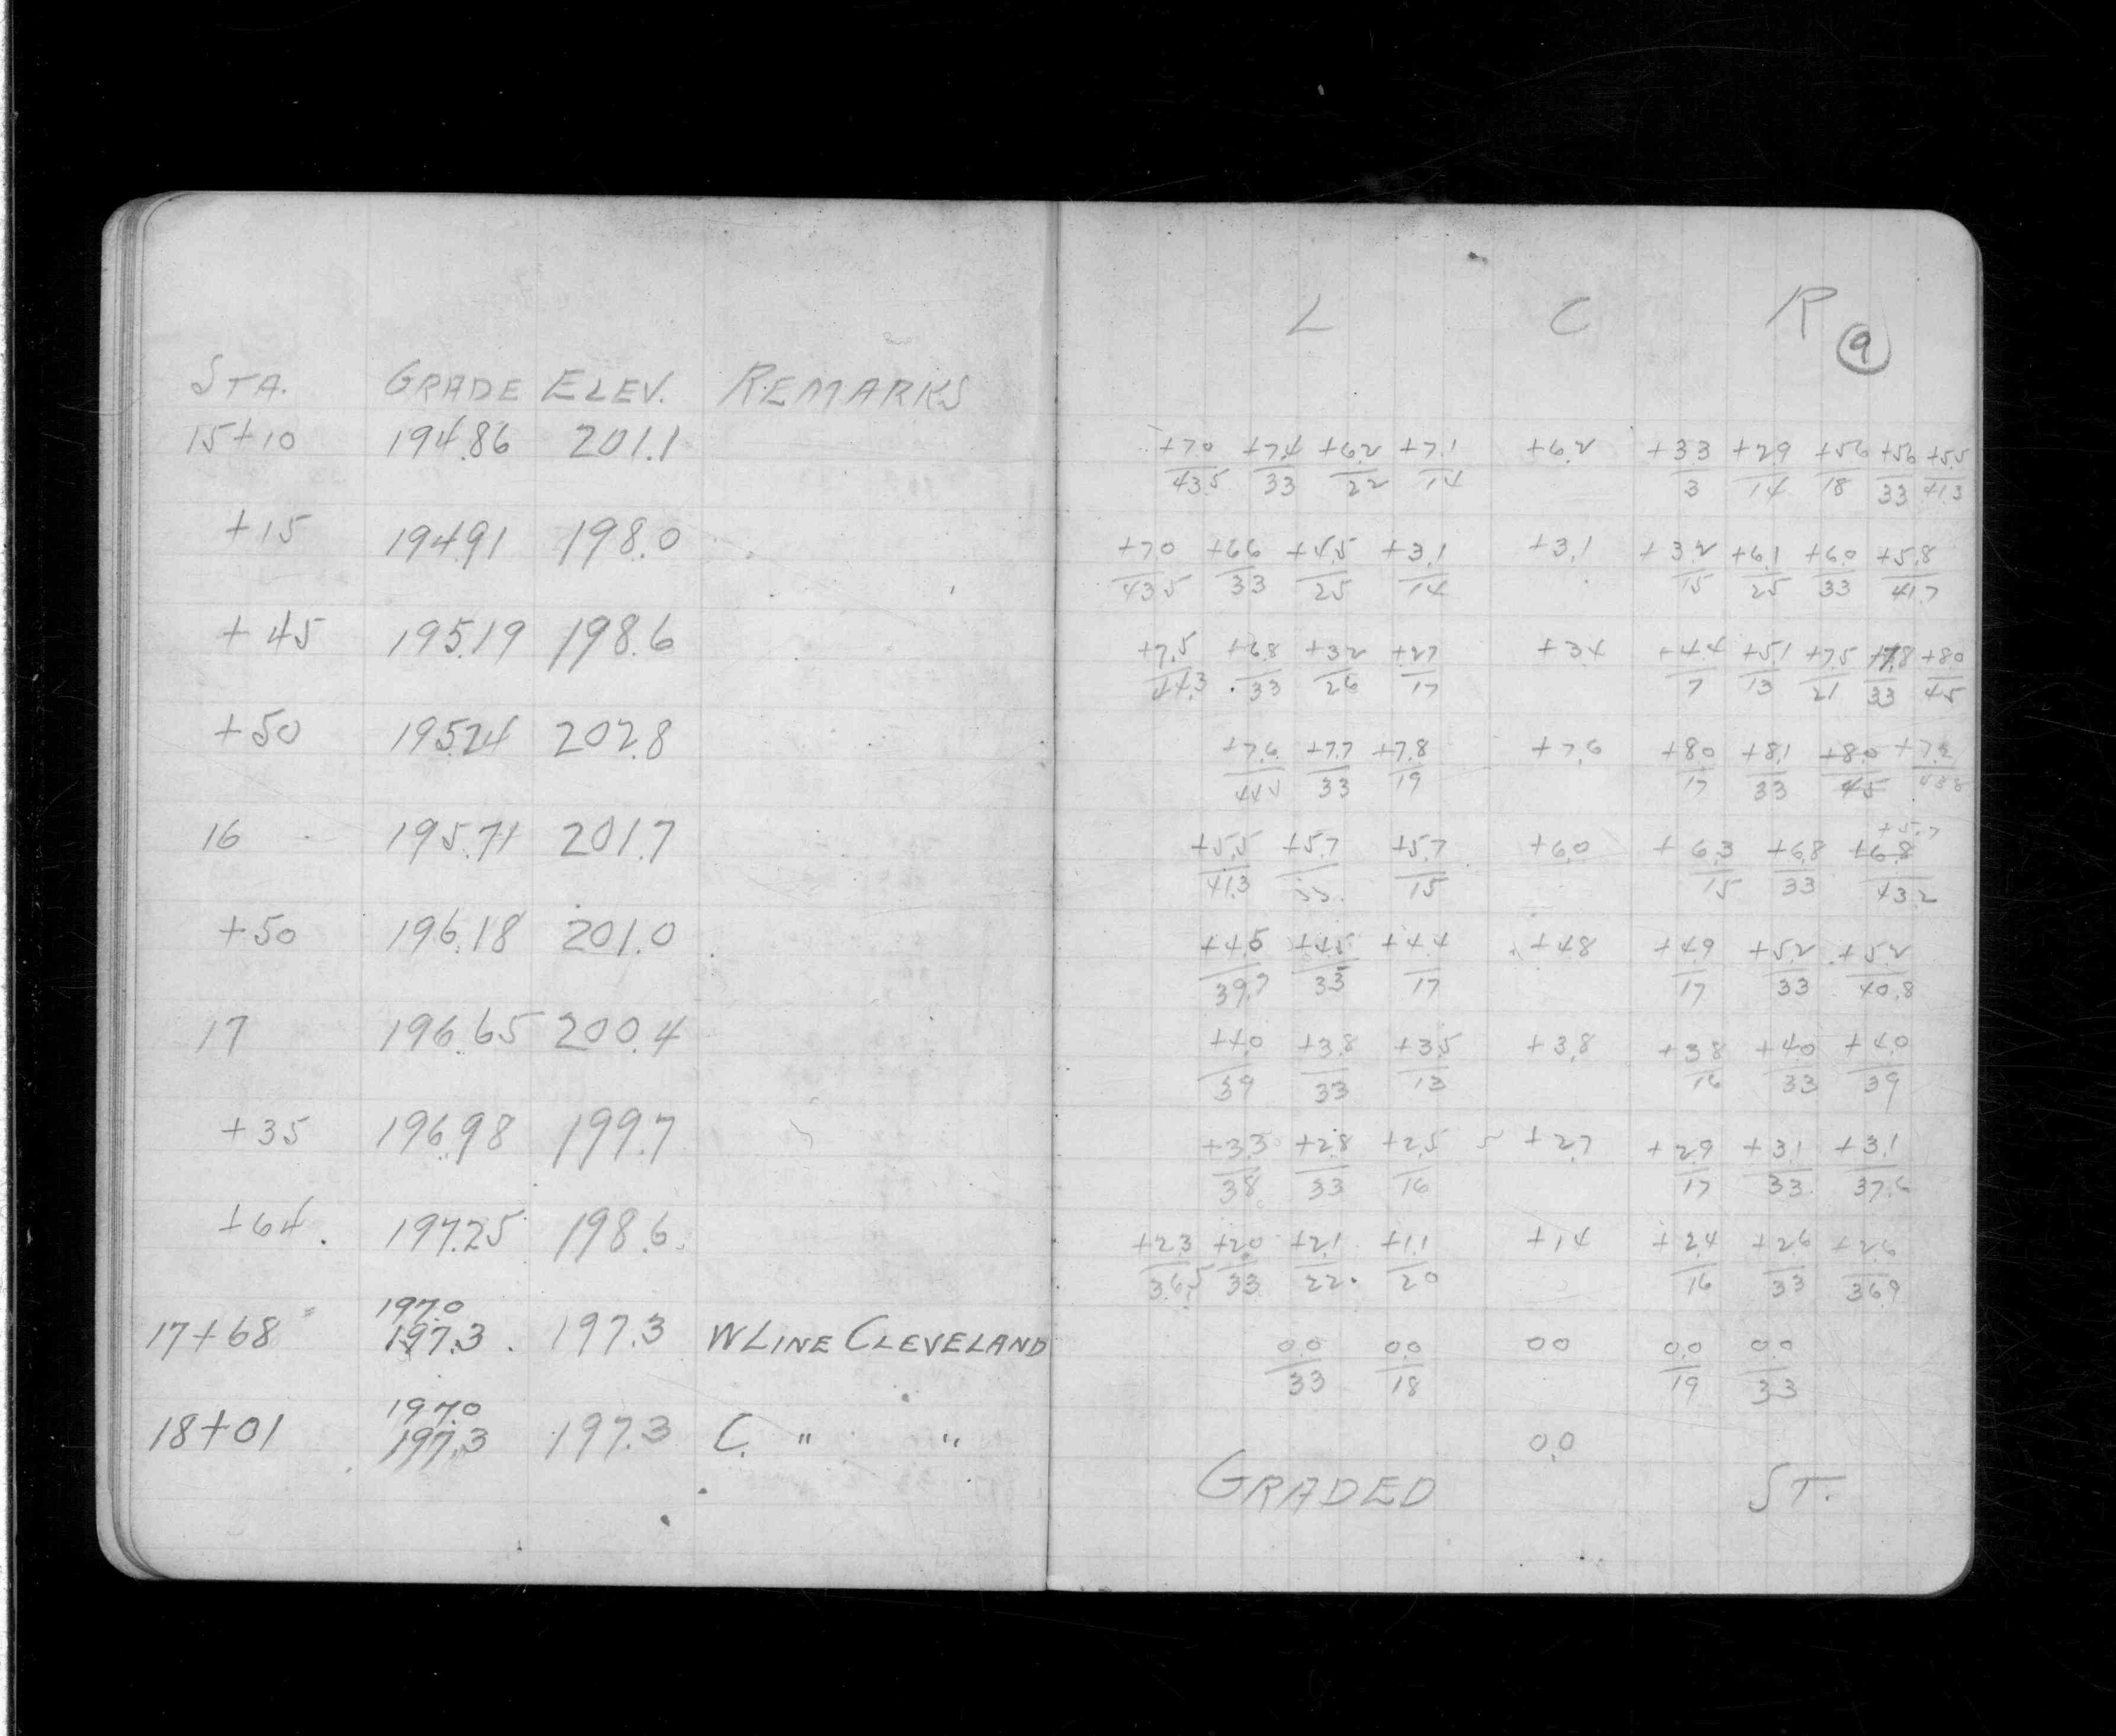 L C R
9
STA. GRADE ELEV. REMARKS
15+10 194.86 201.1
+7.0 +7.4 +6.2 +7.1 +6.2 +3.3 +2.9 +5.6 +5.6 +5.5
43.5 33 22 14 3 14 18 33 41.3
+15 194.91 198.0
+7.0 +6.6 +4.5 +3.1 +3.1 +3.2 +6.1 +6.0 +5.8
43.5 33 25 14 15 25 33 41.7
+45 195.19 198.6
+7.5 +6.8 +3.2 +2.7 +3.4 +4.4 +5.1 +7.5 +7.8 +8.0
44.3 33 26 17 7 13 21 33 45
+50 195.24 202.8
+7.6 +7.7 +7.8 +7.6 +8.0 +8.1 +8.0
33 19 17 33 45
16 195.71 201.7
+5.7
+5.5 +5.7 +5.7 +6.0 +6.3 +6.8 +6.8
41.3 33 15 15 33 43.2
+50 196.18 201.0
+4.5 +4.5 +4.4 +4.8 +4.9 +5.2 +5.2
39.7 33 17 17 33 40.8
17 196.65 200.4
+4.0 +3.8 +3.5 +3.8 +3.8 +4.0 +4.0
39 33 13 16 33 39
+35 196.98 199.7
+3.3 +2.8 +2.5 +2.7 +2.9 +3.1 +3.1
38 33 16 17 33 37.6
+64. 197.25 198.6
+2.3 +2.0 +2.1 +1.1 +1.4 +2.4 +2.6 +2.6
36.5 33 22 20 16 33 36.9
197.0
17+68 197.3 197.3 W LINE CLEVELAND
0.0 0.0 0.0 0.0 0.0
33 18 19 33
197.0
18+01 197.3 197.3 C. " "
0.0
GRADED ST.